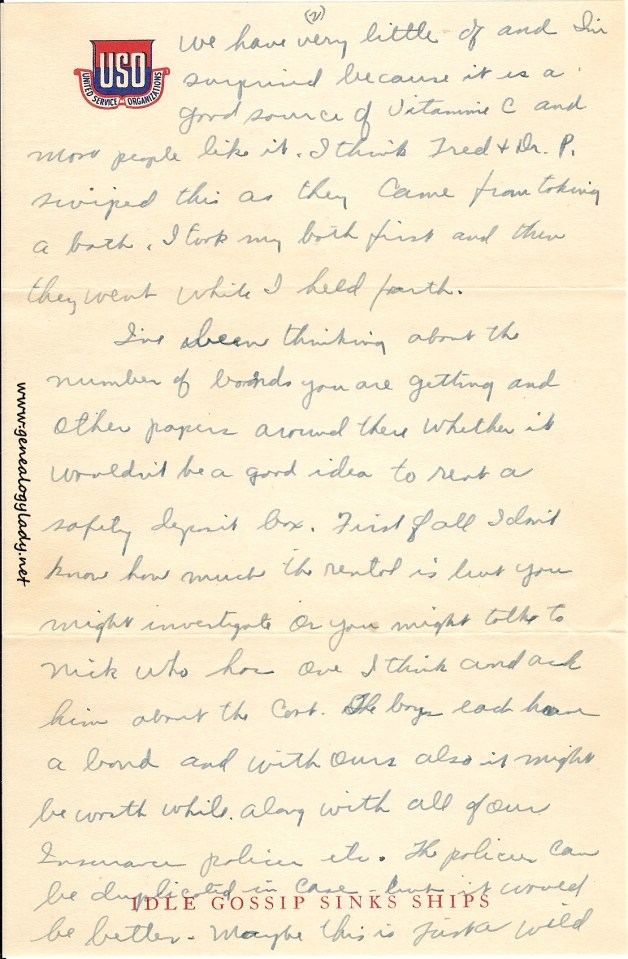 (2)
We have very little of and I'm
USO
UNITED SERVICE ORGANIZATIONS
surprised because it is a
good source of Vitamine C and
most people like it. I think Fred & Dr. P.
swiped this as they came from taking
a bath. I took my bath first and then
they went while I held forth.
I've been thinking about the
number of bonds you are getting and
other papers around there whether it
wouldn't be a good idea to rent a
safety deposit box. First of all I don't
know how much the rental is but you
might investigate or you might talk to
Nick who has one I think and ask
him about the cost. The boys each have
a bond and with ours also it might
be worth while. Along with all of our
Insurance policies etc. The policies can
be duplicated in case - but it would
IDLE GOSSIP SINKS SHIPS
be better. Maybe this is just a wild
www.genealogylady.net